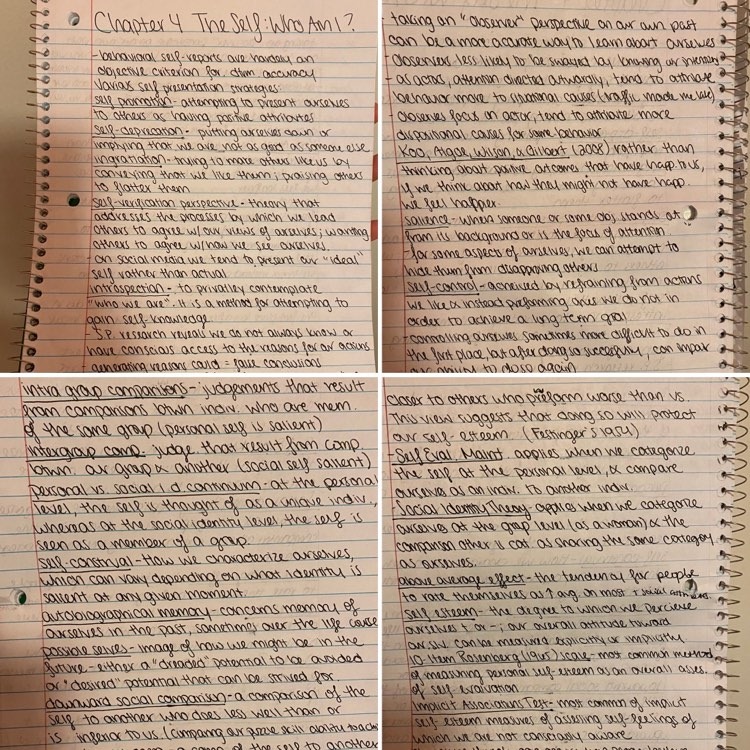 Chapter 4 The Self: Who Am I?
- behavioral self-reports are hardly an
objective criterion for dtrm accuracy
Various self presentation strategies:
self promotion - attempting to present ourselves
to others as having positive attributes
self-deprecation - putting ourselves down or
implying that we are not as good as someone else
ingratiation - trying to make others like us by
conveying that we like them; praising others
to flatter them
self-verification perspective - theory that
addresses the processes by which we lead
others to agree w/ our views of ourselves; wanting
others to agree w/ how we see ourselves.
- on social media we tend to present our "ideal"
self rather than actual
introspection - to privatley contemplate
"who we are". it is a method for attempting to
gain self-knowledge
S.P. research reveals we do not always know or
have conscious access to the reasons for our actions
generating reasons could - false conclusions
- taking an "observer" perspective on our own past
can be a more accurate way to learn about ourselves
- observers less likely to be swayed by knowing our intentions
- as actors, attention directed outwardly, tend to attribute
behavior more to situational causes (traffic made me late)
observers focus on actor, tend to attribute more
dispositional causes for same behavior
Koo, Algoe, Wilson, & Gilbert (2008) rather than
thinking about positive outcomes that have happ to us,
if we think about how they might not have happ.
we feel happier
salience - when someone or some obj stands out
from its background or is the focus of attention
- for some aspects of ourselves, we can attempt to
hide them from disapproving others
self-control - achieved by refraining from actions
we like & instead preforming ones we do not in
order to achieve a long term goal
- controlling ourselves sometimes more difficult to do in
the first place, but after doing so successfully, can impair
our ability to do so again
intra group comparisons - judgements that result
from comparisons btwn indiv. who are mem.
of the same group (personal self is salient)
intergroup comp. judge. that result from comp.
btwn. our group & another (social self salient)
personal vs. social i.d. continuum - at the personal
level, the self is thought of as a unique indiv.,
whereas at the social identity level, the self is
seen as a member of a group.
self-construal - how we characterize ourselves,
which can vary depending on what identity is
salient at any given moment
autobiographical memory - concerns memory of
ourselves in the past, sometimes over the life course
possible selves - image of how we might be in the
future - either a "dreaded" potential to be avoided
or "desired" potential that can be strived for.
downward social comparison - a comparison of the
self to another who does less well than or
is inferior to us (comparing our guitar skill ability to
self to another
closer to others who preform worse than us.
This view suggests that doing so will protect
our self-esteem. (Festinger's 1954)
- Self Eval Maint. applies when we categorize
the self at the personal level, & compare
ourselves as an indiv. to another indiv.
Social Identity Theory - applies when we categorize
ourselves at the group level (as a woman) & the
comparison other is cat. as sharing the same category
as ourselves.
above average effect - the tendency for people
to rate themselves as ↑ avg. on most + social attributes.
self esteem - the degree to which we percieve
ourselves + or - ; our overall attitude toward
ourselv. can be measured explicitly or implicitly
10 item Rosenberg (1965) scale - most common method
of measuring personal self-esteem as an overall asses.
of self evaluation
Implicit Associations Test - most common of implicit
self-esteem measures of assessing self-feelings of
which we are not consciously aware